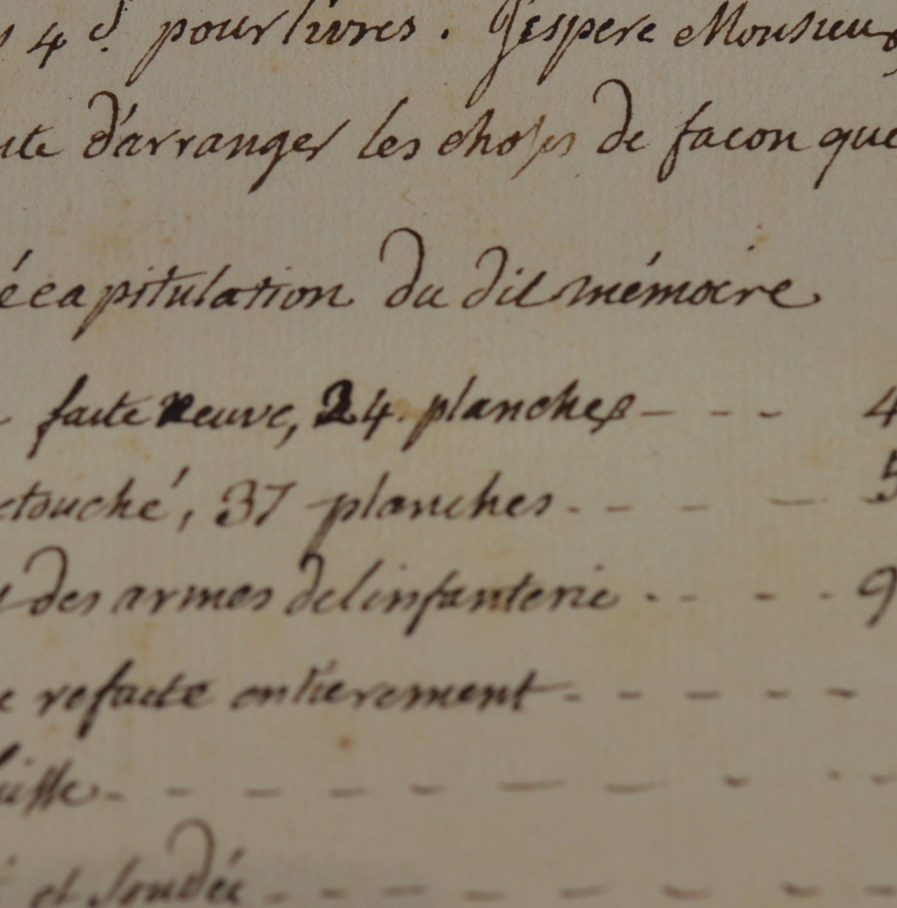 4 d. pour livres. J'espere Monsieur
d'arranger les choses de facon que
écapitulation du dit mémoire
faite neuve, 24. planches - - - 4
etouché, 37 planches - - - - 5
des armes de linfanterie - - - - 9
refaite entierement - - - - - -
- - - - - - - - -
et soudée - - - - - - -